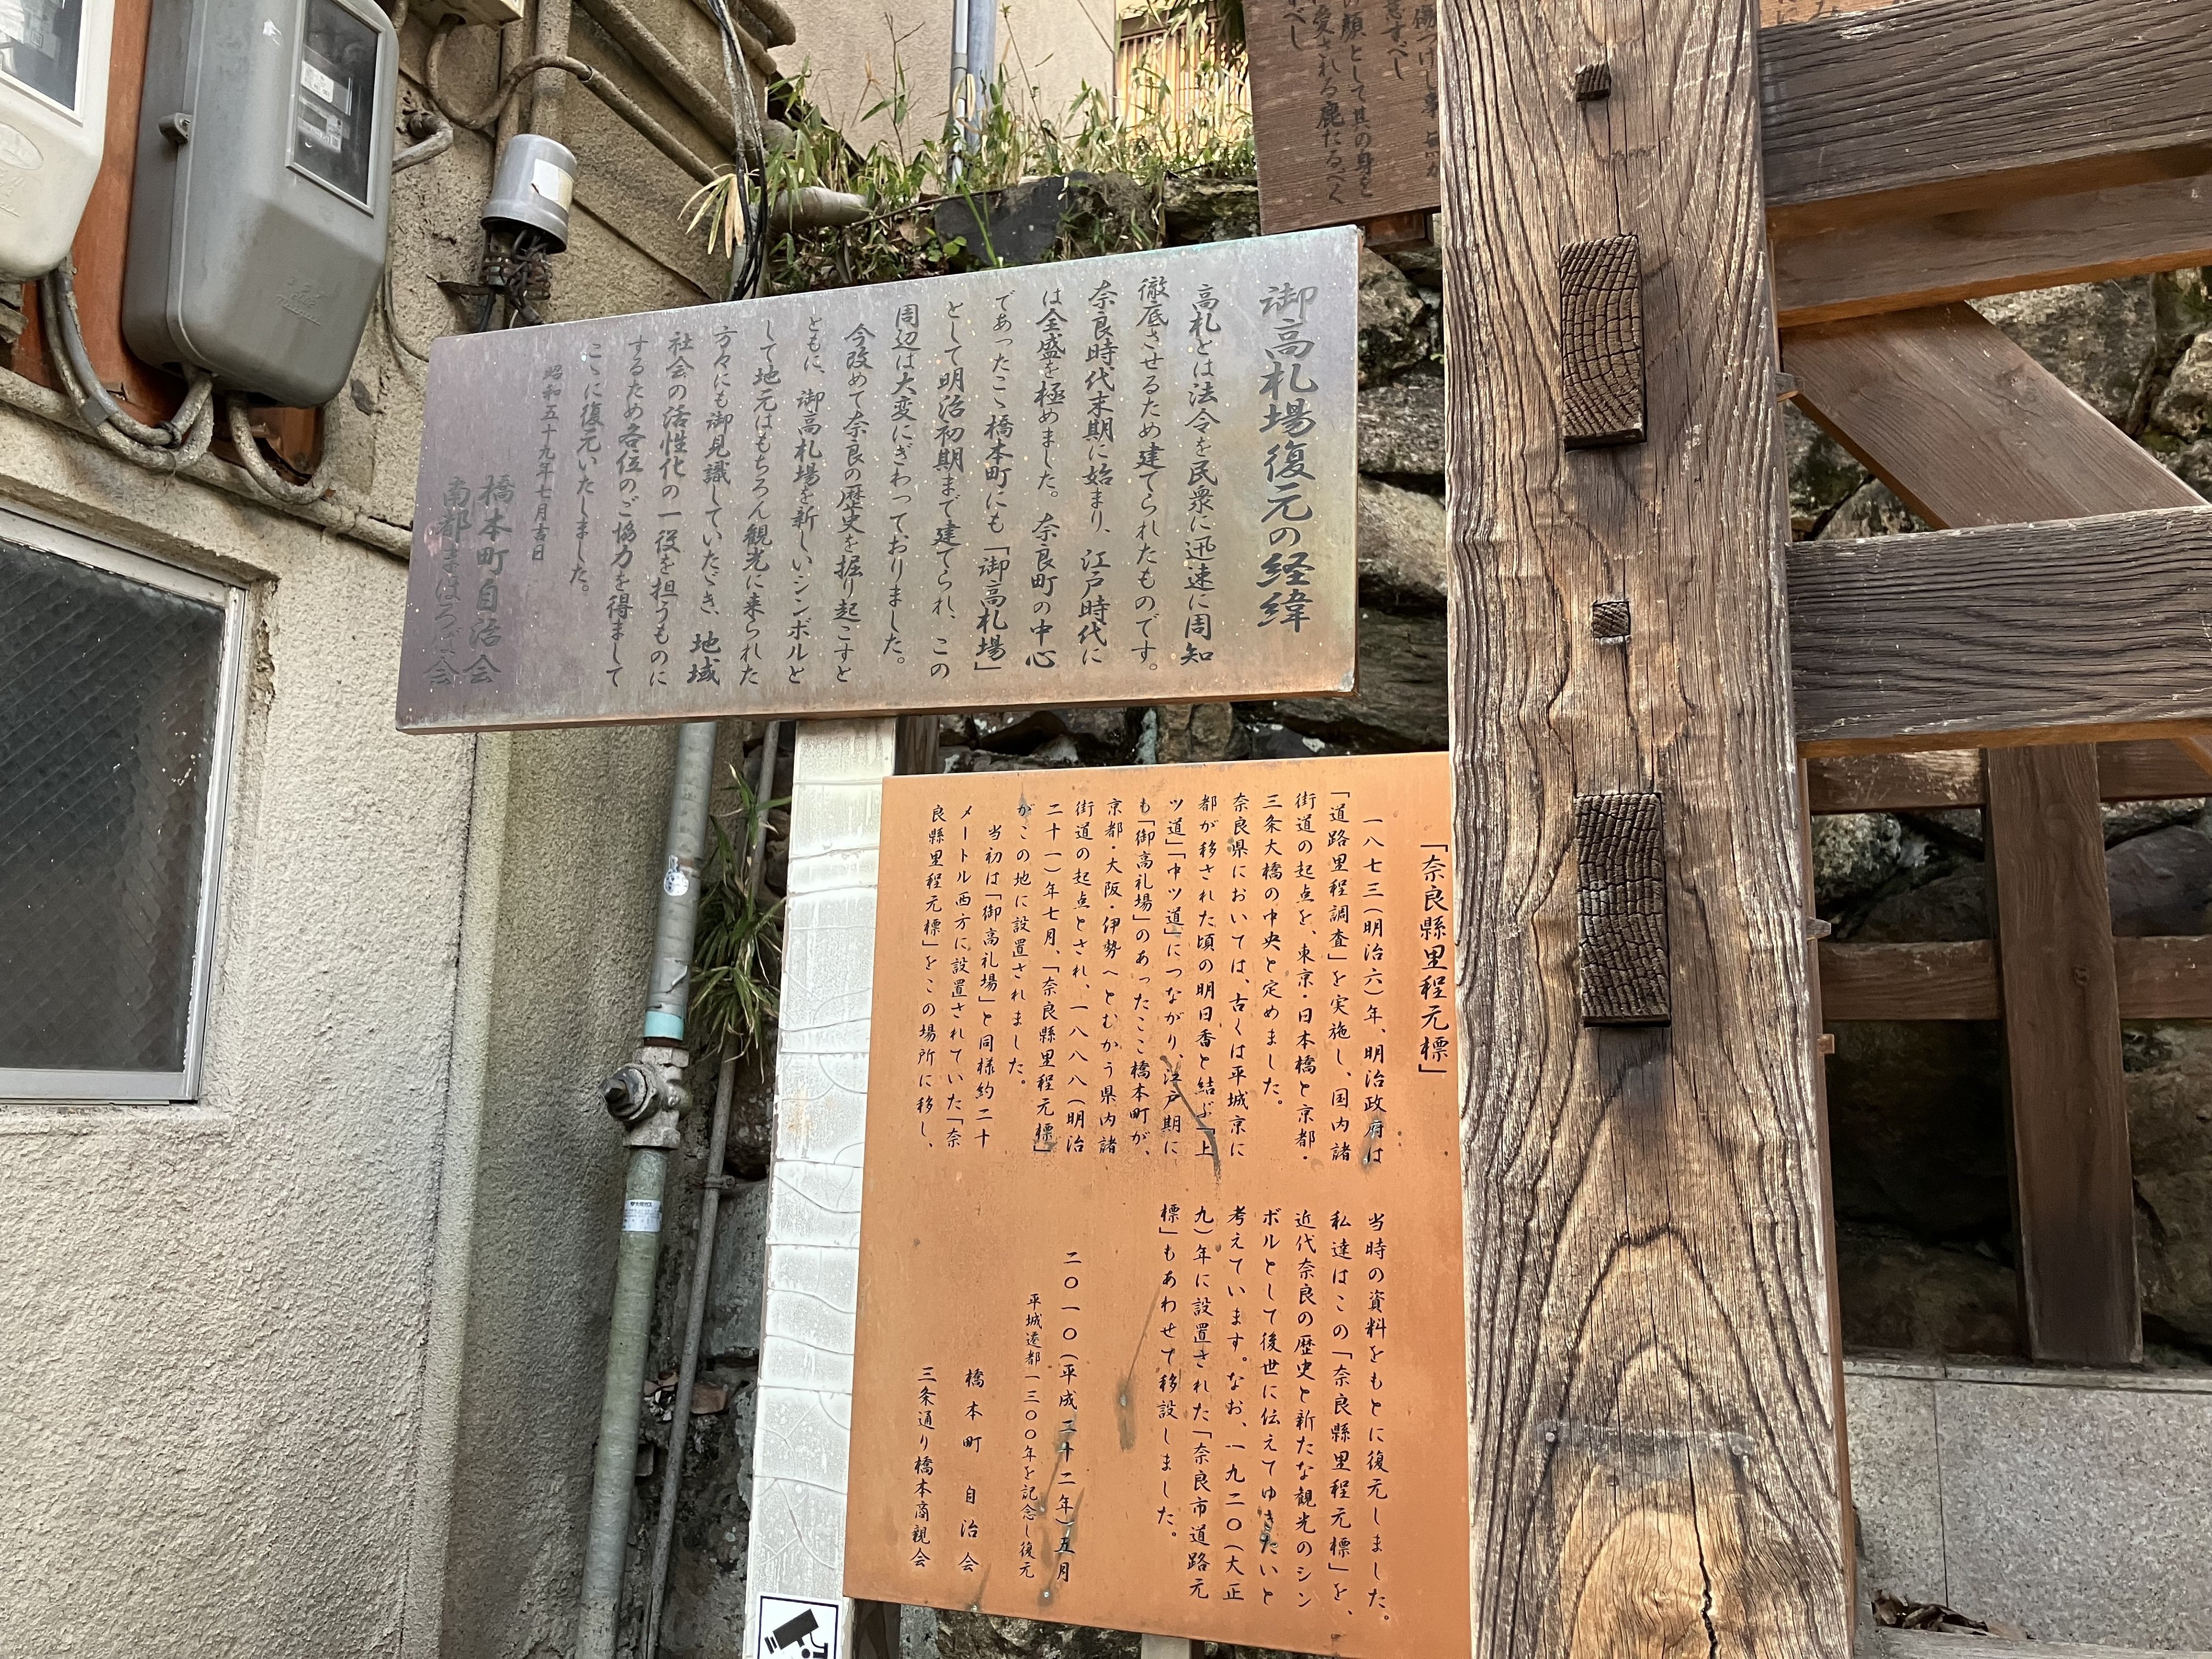 顔として其の身を
愛される鹿たるべく
意すべし
べし
御高札場復元の経緯
高札とは法令を民衆に迅速に周知
徹底させるため建てられたものです。
奈良時代末期に始まり、江戸時代に
は全盛を極めました。奈良町の中心
であったこゝ橋本町にも「御高札場」
として明治初期まで建てられ、この
周辺は大変にぎわっておりました。
今改めて奈良の歴史を掘り起こすと
ともに、御高札場を新しいシンボルと
して地元はもちろん観光に来られた
方々にも御見識していたゞき、地域
社会の活性化の一役を担うものに
するため各位のご協力を得まして
こゝに復元いたしました。
昭和五十九年七月吉日
橋本町自治会
南都まほろば会
「奈良縣里程元標」
一八七三(明治六)年、明治政府は
「道路里程調査」を実施し、国内諸
街道の起点を、東京・日本橋と京都・
三条大橋の中央と定めました。
奈良県においては、古くは平城京に
都が移された頃の明日香と結ぶ「上
ツ道」「中ツ道」につながり、江戸期に
も「御高礼場」のあったここ橋本町が、
京都・大阪・伊勢へとむかう県内諸
街道の起点とされ、一八八八(明治
二十一)年七月、「奈良縣里程元標」
がこの地に設置されました。
当初は「御高礼場」と同様約二十
メートル西方に設置されていた「奈
良縣里程元標」をこの場所に移し、
当時の資料をもとに復元しました。
私達はこの「奈良縣里程元標」を、
近代奈良の歴史と新たな観光のシン
ボルとして後世に伝えてゆきたいと
考えています。なお、一九二〇(大正
九)年に設置された「奈良市道路元
標」もあわせて移設しました。
二〇一〇(平成二十二年)五月
平城遷都一三〇〇年を記念し復元
橋本町自治会
三条通り橋本商親会